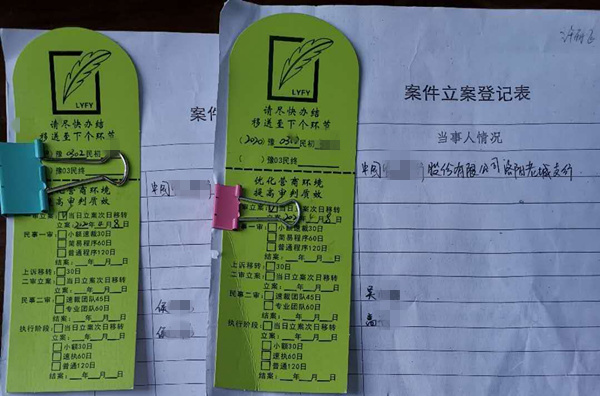 LYFY
请尽快办结
移送至下个环节
豫 0302 民初
( )豫03民终
营商环境
高审判质效
立案: 当日立案次日移转
立案 年4月8日
民事一审: 小额速裁30日
简易程序60日
普通程序120日
结案: 年 月 日
上诉移转: 30日
二审立案: 当日立案次日移转
立案: 年 月 日
民事二审: 速裁团队45日
专业团队60日
结案: 年 月 日
执行阶段: 当日立案次日移转
立案: 年 月 日
小额30日
速执60日
普通120日
结案: 年 月 日
案件
中国
LYFY
请尽快办结
移送至下个环节
(2020)豫 0302
( )豫03民终
优化营商环境
提高审判质效
当日立案次日移转
4月8日
事一审: 小额速裁30日
简易程序60日
普通程序120日
结案: 年 月 日
上诉移转: 30日
二审立案: 当日立案次日移转
立案: 年 月 日
民事二审: 速裁团队45日
专业团队60日
结案: 年 月 日
执行阶段: 当日立案次日移转
立案: 年 月 日
小额30日
速执60日
普通120日
结案: 年 月 日
案件立案登记表
当事人情况
中国 股份有限公司洛阳老城支行
吴